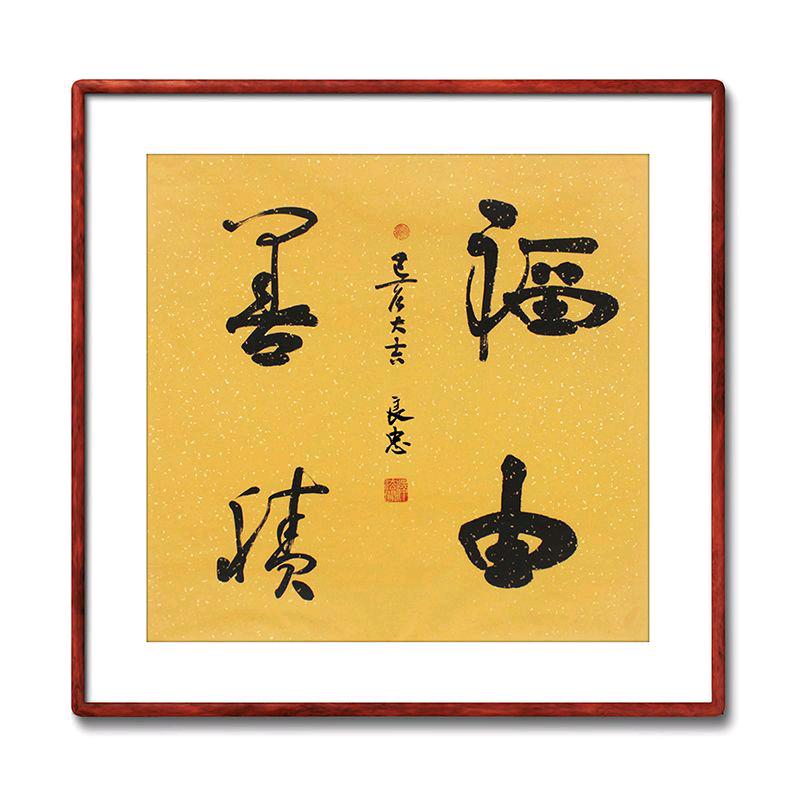 福由
善積
己亥大吉 良忠